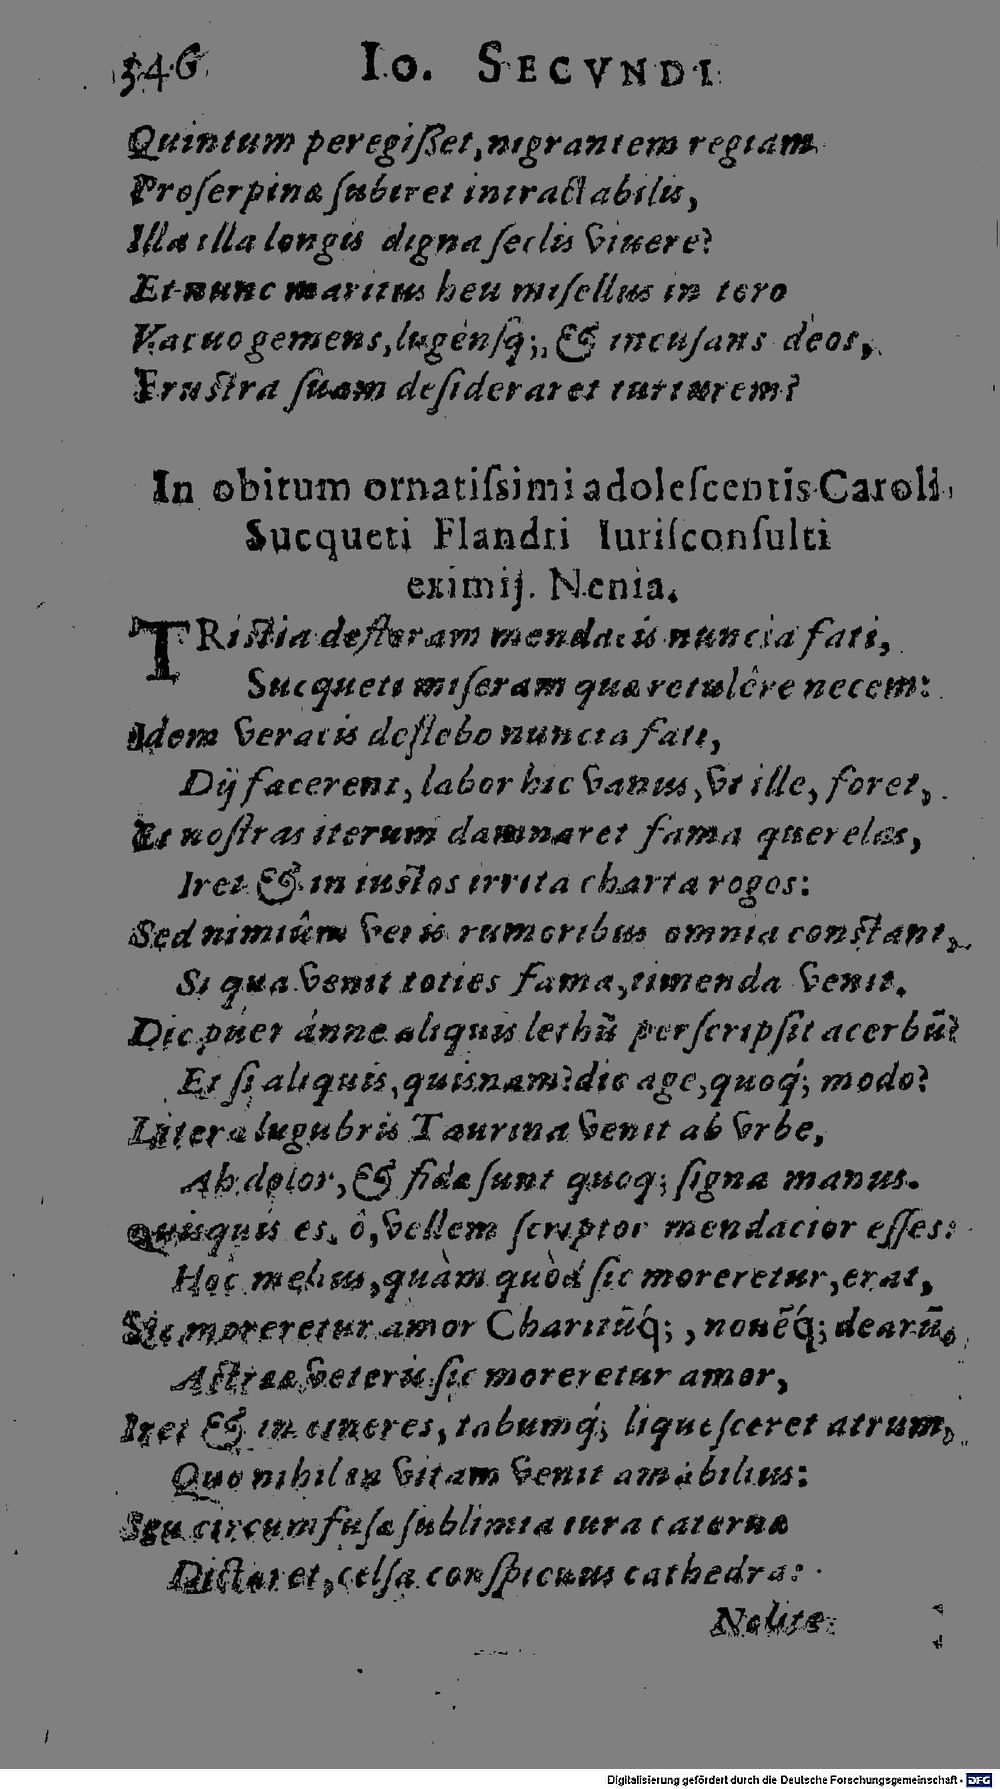 546 Io. SECVNDI
Quintum peregißet, nigrantem regiam
Proserpinæ subiret intractabilis,
Illa illa longis digna seclis viuere?
Et nunc maritus heu misellus in toro
Vacuo gemens, lugensq́;, & incusans deos,
Frustra suam desideraret turturem?
In obitum ornatissimi adolescentis Caroli
Sucqueti Flandri Iurisconsulti
eximij. Nenia.
TRistia defleram mendacis nuncia fati,
Sucqueti miseram quæ retulêre necem:
Idem veracis deflebo nuncia fati,
Dij facerent, labor hic vanus, vt ille, foret,
Et nostras iterum damnaret fama querelas,
Iret & in iustos irrita charta rogos:
Sed nimiûm veris rumoribus omnia constant,
Si qua venit toties fama, timenda venit.
Dic puer ánne aliquis lethū perscripsit acerbū?
Et si aliquis, quisnam? dic age, quoq́; modo?
Litera lugubris Taurina venit ab vrbe,
Ah dolor, & fidæ sunt quoq; signa manus.
Quisquis es, ô, vellem scriptor mendacior esses:
Hoc melius, quàm quòd sic moreretur, erat,
Sic moreretur amor Charitūq́;, nouēq́; dearū,
Astrææ veteris sic moreretur amor,
Iret & in cineres, tabumq́; liquesceret atrum,
Quo nihil in vitam venit amabilius:
Seu circumfusæ sublimia iura cateruæ
Dictaret, celsa conspicuus cathedra:
Nolitæ
Digitalisierung gefördert durch die Deutsche Forschungsgemeinschaft - DFG